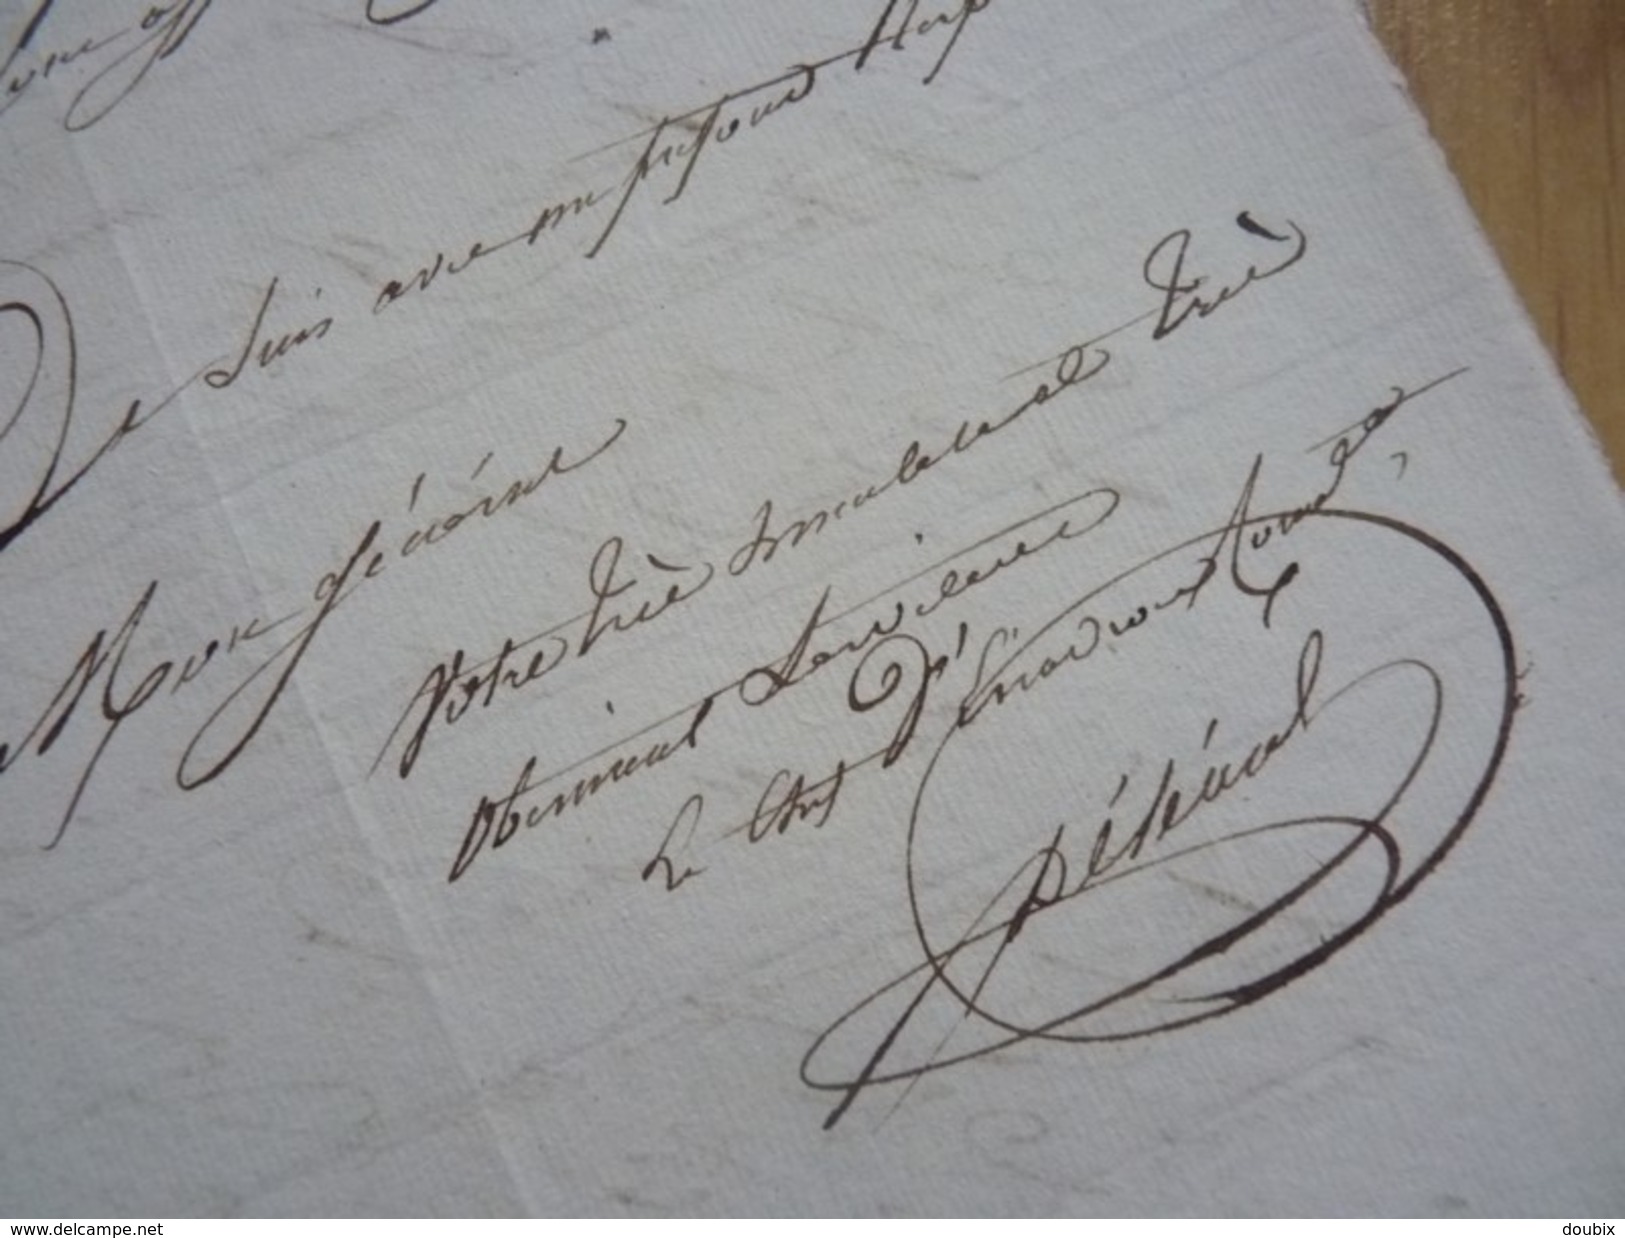 Je suis avec un profond Resp
Mon général
Votre très humble et très
obeissant serviteur
Le Chef d'Escadron
Désénal
www.delcampe.net
doubix